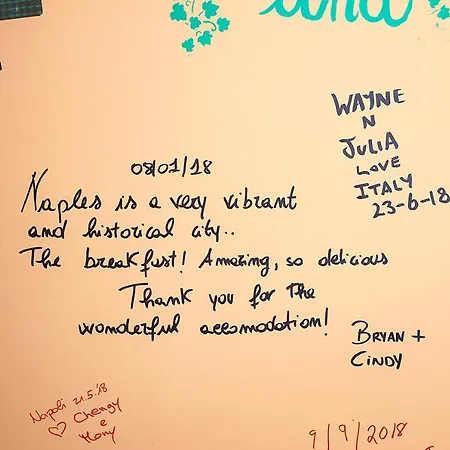 and
WAYNE
N
JULIA
LOVE
ITALY
23-6-18
08/01/18
Naples is a very vibrant
and historical city..
The breakfast! Amazing, so delicious
Thank you for the
wonderful accomodation!
BRYAN +
CINDY
Napoli 21.5.18
♡ Chengy
e
9/9/2018